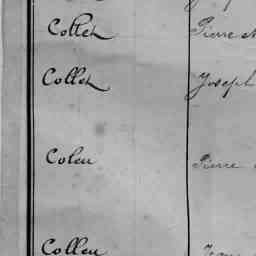 Collet Pierre
Collet Joseph
Coleu Pierre
Colleu